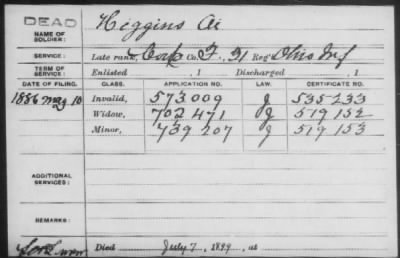 DEAD
NAME OF SOLDIER: Higgins Ai
SERVICE: Late rank, Corp Co. F, 31 Reg't Ohio Inf
TERM OF SERVICE: Enlisted , 1 Discharged , 1
DATE OF FILING. CLASS. APPLICATION NO. LAW. CERTIFICATE NO.
1886 May 10 Invalid, 573009 J 535233
Widow, 702471 J 519152
Minor, 739207 J 519153
ADDITIONAL SERVICES:
REMARKS:
Died July 7, 1899, at